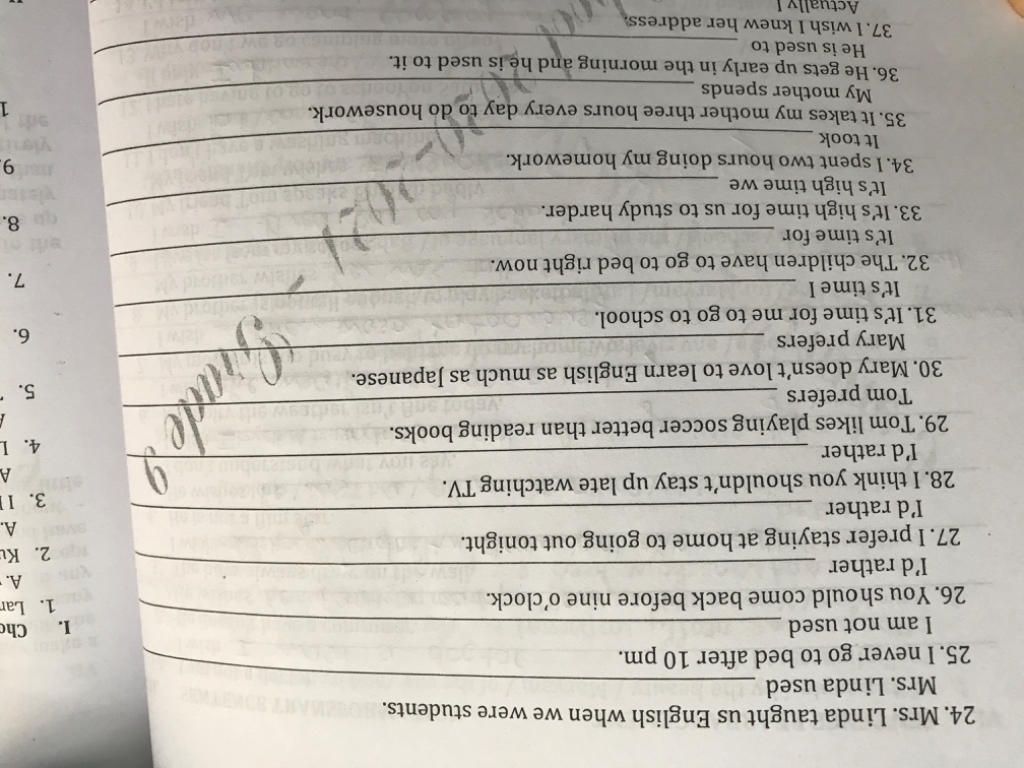 24. Mrs. Linda taught us English when we were students.
Mrs. Linda used
25. I never go to bed after 10 pm.
I am not used
26. You should come back before nine o'clock.
I'd rather
27. I prefer staying at home to going out tonight.
I'd rather
28. I think you shouldn't stay up late watching TV.
I'd rather
29. Tom likes playing soccer better than reading books.
Tom prefers
30. Mary doesn't love to learn English as much as Japanese.
Mary prefers
31. It's time for me to go to school.
It's time I
32. The children have to go to bed right now.
It's time for
33. It's high time for us to study harder.
It's high time we
34. I spent two hours doing my homework.
It took
35. It takes my mother three hours every day to do housework.
My mother spends
36. He gets up early in the morning and he is used to it.
He is used to
37. I wish I knew her address.
Actually I
Grade 9
I. Cho
1. Lar
A.
2. Ku
A.
3. I
A
4.
5.
6.
7.
8.
9.
1